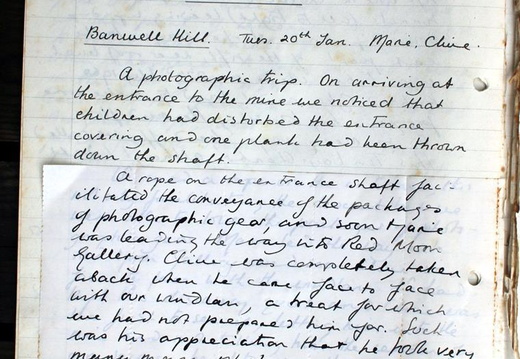 Banwell Hill. Tues. 20th Jan. Marie, Clive.
A photographic trip. On arriving at
the entrance to the mine we noticed that
children had disturbed the entrance
covering and one plank had been thrown
down the shaft.
A rope on the entrance shaft fac-
ilitated the conveyance of the packages
of photographic gear, and soon Marie
was leading the way into Red Moon
Gallery. Clive was completely taken
aback when he came face to face
with our windlass, a treat for which
we had not prepared him for. Such
was his appreciation that he took very
many